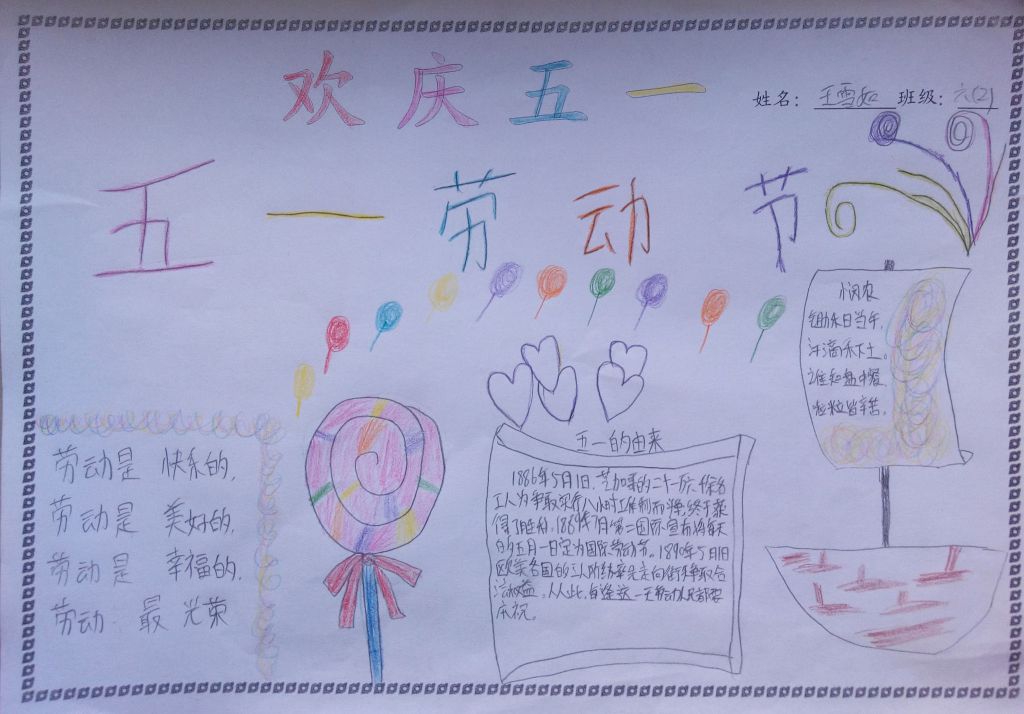 欢庆五一
姓名：王雪如 班级：六(2)
五一劳动节
悯农
锄禾日当午，
汗滴禾下土。
谁知盘中餐，
粒粒皆辛苦。
劳动是 快乐的，
劳动是 美好的，
劳动是 幸福的，
劳动 最 光荣
五一的由来
1886年5月1日，芝加哥的二十一万6千余名
工人为争取实行八小时工作制而罢工，终于获
得了胜利，1889年7月第二国际宣布将每年
的五月一日定为国际劳动节。1890年5月1日
欧美各国的工人阶级率先走向街头争取合
法权益，从此，每逢这一天劳动人民都要
庆祝。